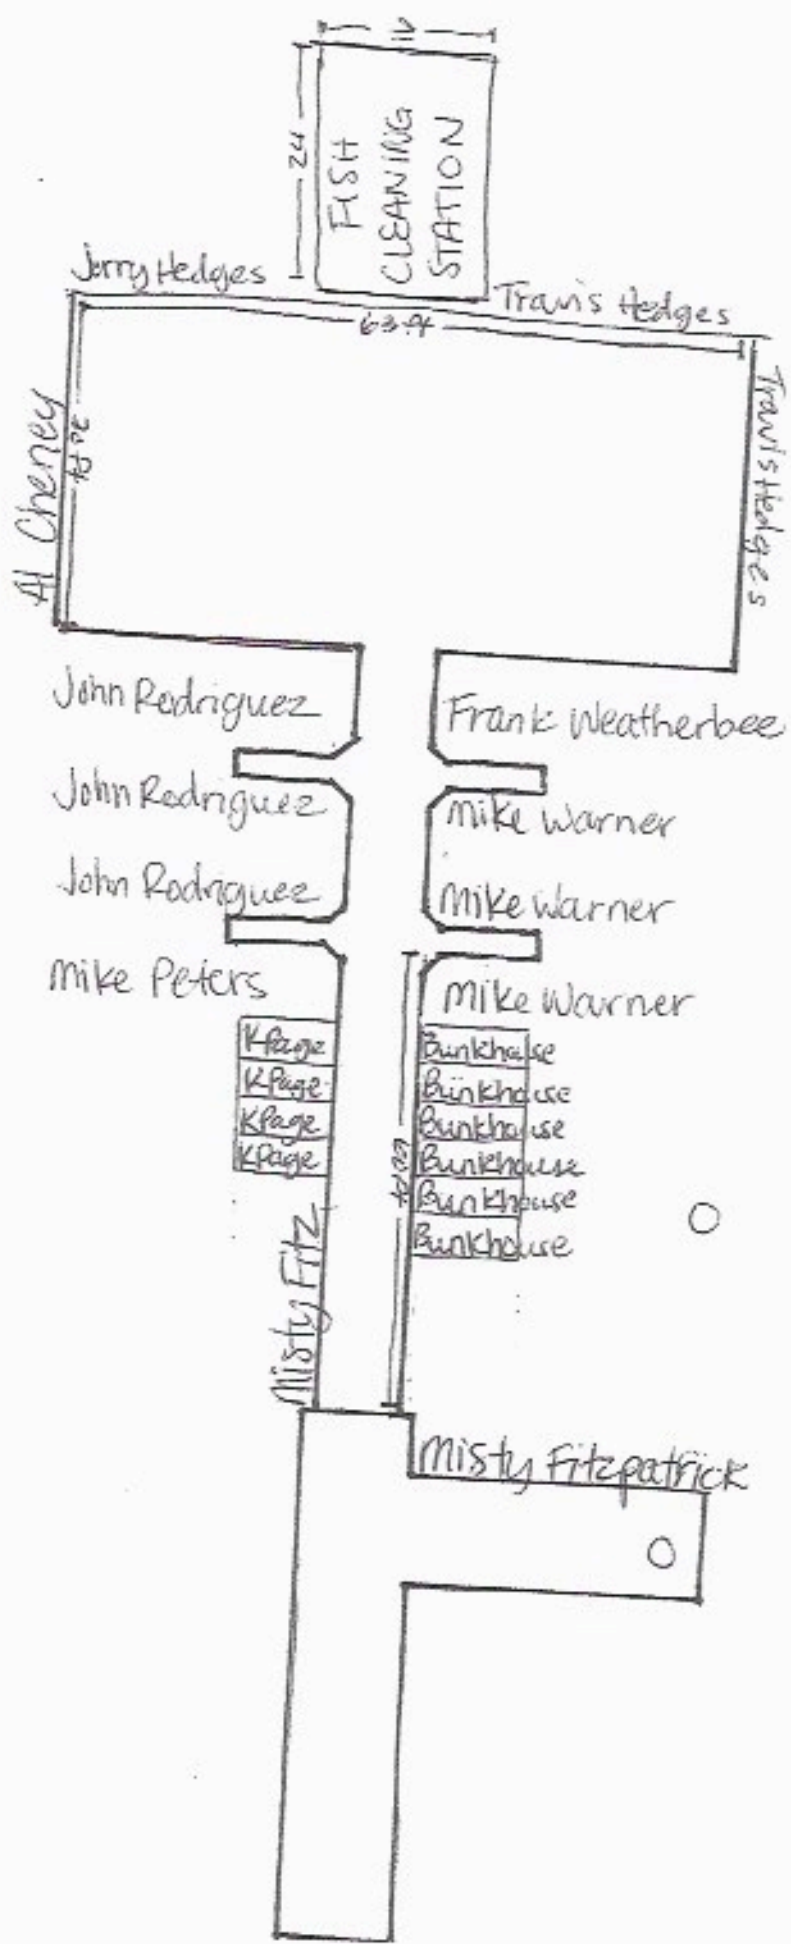 24
FISH
CLEANING
STATION
Jerry Hedges
Travis Hedges
63 ft
Al Cheney
Travis Hedges
John Rodriguez
Frank Weatherbee
John Rodriguez
Mike Warner
John Rodriguez
Mike Warner
Mike Peters
Mike Warner
KPage
Bunkhouse
KPage
Bunkhouse
KPage
Bunkhouse
KPage
Bunkhouse
Bunkhouse
Bunkhouse
Misty Fitz
Misty Fitzpatrick